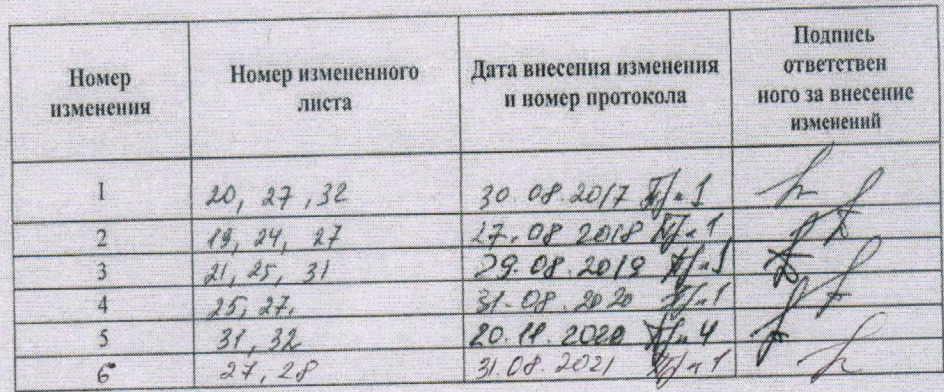 Номер изменения
Номер измененного листа
Дата внесения изменения и номер протокола
Подпись ответствен ного за внесение изменений
1 20, 27, 32 30.08.2017 Пр. №1
2 19, 24, 27 27.08 2018 Пр. №1
3 21, 25, 31 29.08.2019 Пр. №1
4 25, 27, 31.08.2020 Пр. №1
5 31, 32 20.11.2020 Пр. №4
6 27, 28 31.08.2021 Пр. №1